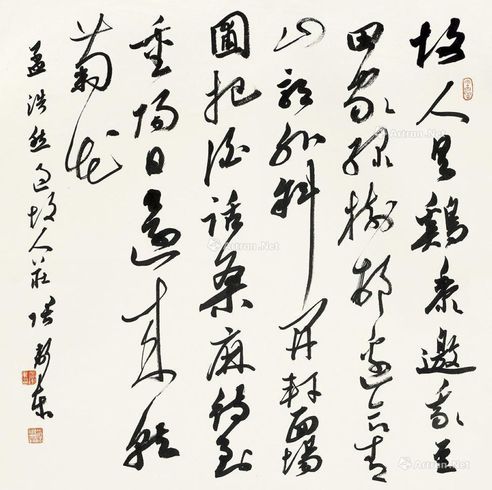 故人具鷄黍邀我至
田家绿树邨邊合青
山郭外斜開軒面場
圃把酒話桑麻待到
重陽日還來就
菊花
孟浩然過故人莊
Artron.Net
Artron.Net
Artron.Net